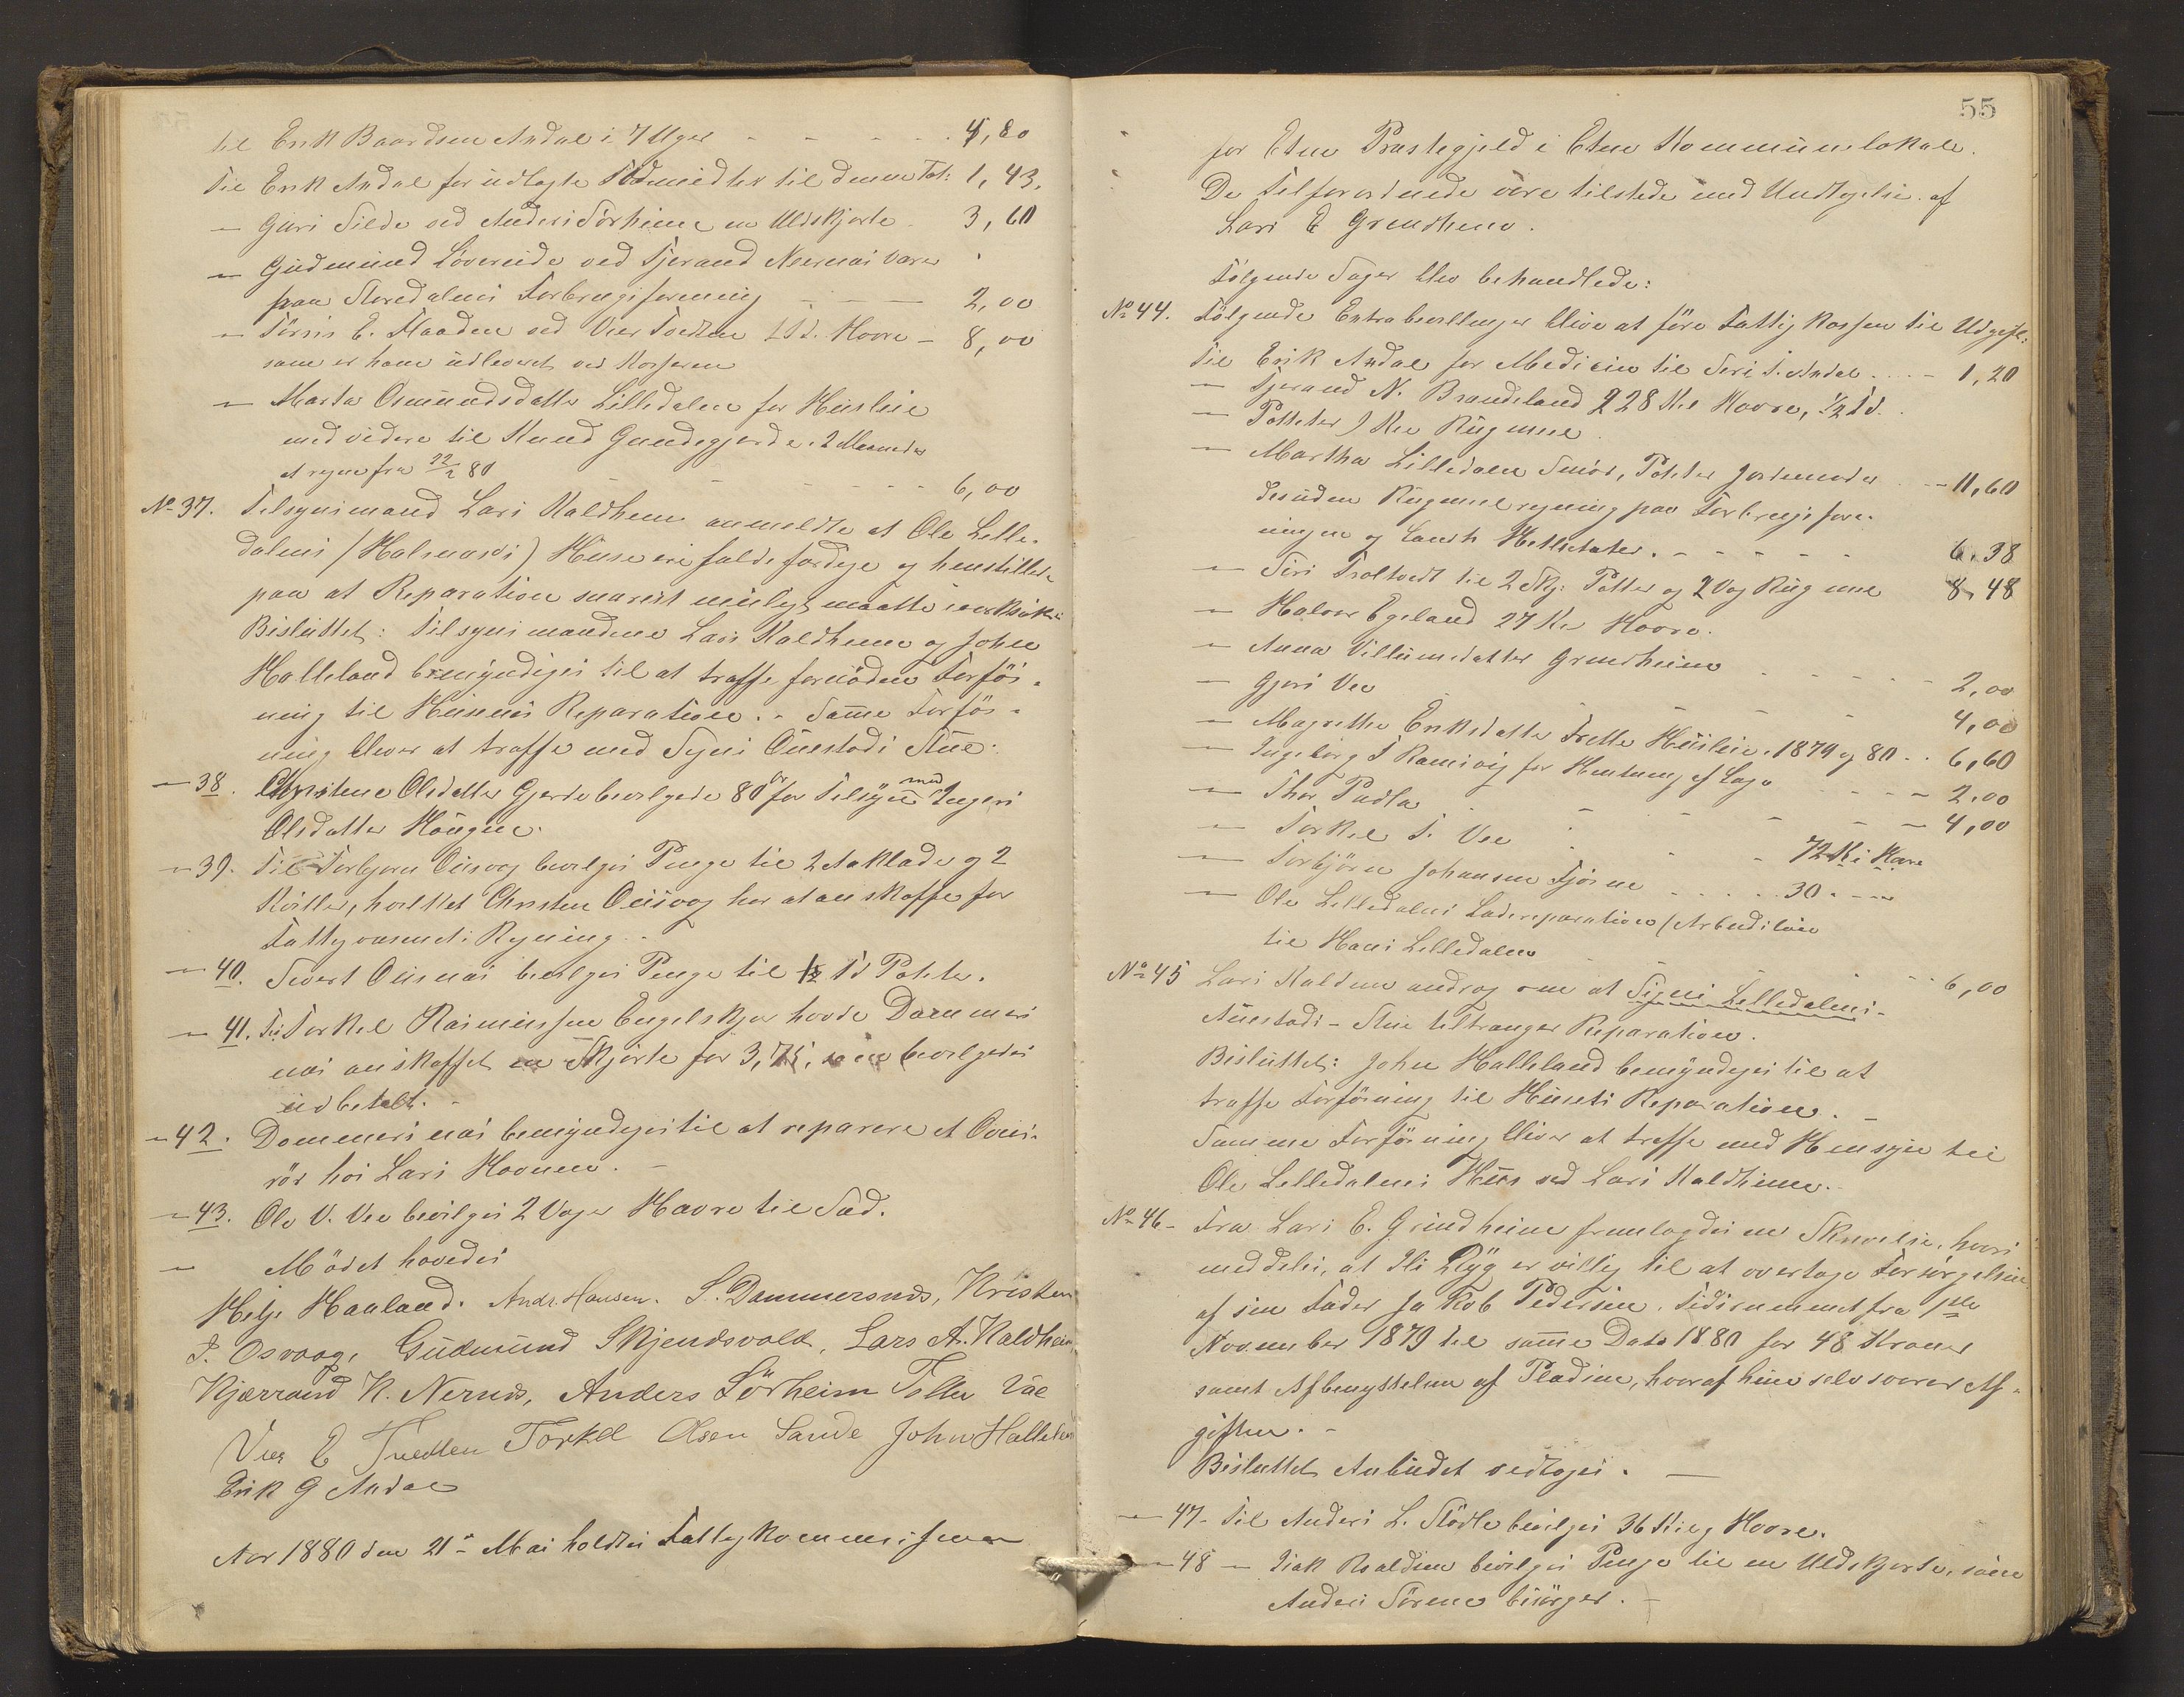 til Erik Baardsen Andal i 7 Uger - - - - 4,80
Til Erik Andal for udlagte Fødmidler til denne Tot: 1,43.
— Guri Silde ved Anders Sørheim en Uldskjorte 3,60
— Gudmund Lovereide ved Tjerand Nærnæs Varer
paa Storedalens Forbrugsforening - - - 2,00
— Tørris E. Flaaden ved Vier Tvedten 1 Td. Havre - 8,00
som er ham udleveret ved Kasseren
— Marta Osmundsdatter Lilledalen for Husleie
med videre til Knud Gundegjerde i 2 Maaneder
at regne fra 22/2 80 - - - - - 6,00
No 37. Tilsynsmand Lars Kaldheim anmeldte at Ole Lille-
dalens (Halsnæs) Huse ere faldefærdige og henstilles
paa at Reparation snarest muligt maatte iværksættes
Besluttet: Tilsynsmændene Lars Kaldheim og John
Halleland bemyndiges til at træffe fornøden Forføi-
ning til Husenes Reparation. - Samme Forføi-
ning bliver at træffe med Signi Øvrestads Stue.
— 38. Christine Olsdatter Gjerde bevilgede 80 ør for Tilsyn med Ingeri
Olsdatter Haugen.
— 39. Til Torbjørn Osvaag bevilges Penge til 2 Aaklæde og 2
Kviller, hvilket Christen Osvaag har at anskaffe for
Fattigvæsenets Regning.
— 40. Sivert Osnæs bevilges Penge til 1/2 Td Poteter.
— 41. Til Torkel Rasmussen Engelskjøn havde Dammers-
næs anskaffet en Skjorte for 3,75, som bevilgedes
udbetalt. -
— 42. Dammersnæs bemyndiges til at reparere et Ovns-
rør hos Lars Haavnen. -
— 43. Ole V. Vee bevilges 2 Voger Havre til Sæd.
— Mødet hævedes
Helje Haaland. Andr. Hansen. S. Dammersnæs, Kristen
T. Osvaag, Gudmund Skjendsvold, Lars A. Kaldheim,
Kjærrand K. Nernæs, Anders Sørheim
Vier E Tvedten Torkel Olsen Sande John Halleland
Erik G Andal
Aar 1880 den 21de Mai holdtes Fattigkommission
55
for Etne Præstegjeld i Etne Kommunelokale.
De Tilforordnede vare tilstede med Undtagelse af
Lars E Grindheim.
Følgende Sager blev behandlede:
No 44. Følgende Extrabevillinger blive at føre Fattigkassen til Udgift:
Til Erik Andal for Medicin til Siri S. Andal - - - 1,20
— Tjerand N. Brandeland 28 Kil Havre, 1/2 Td.
Poteter Kil Rugmel
— Martha Lilledalen Smør, Poteter Jordmoder - - 11,60
desuden Rugmel regning paa Forbrugsfore-
ningen og Hettletater. - - - - - 6.38
— Siri Troltvedt til 2 Skj: Poteter og 2 Vog Rugmel 8,48
— Halvor Egeland 27 Kil Havre.
— Anna Villumsdatter Grindheim - - - - - 2,00
— Gjøri Vee - - - - 4,00
— Magrethe Eriksdatter Frette Husleie. 1879 og 80 . . 6,60
— Ingeborg T Ramsvig for Hentning af Læge - - - 2.00
— Thor Padla - - - - - 4,00
— Torkel T. Vee - - - 72 Kil Havre
— Torbjørn Johansen Tjørne - - - - 30 - —
— Ole Lilledalens Ladereparation (Arbeidsløn
til Hans Lilledalen - - - - - 6,00
No 45 Lars Kaldheim androg om at Signi Lilledalens-
Aurstads- Stue tiltrænger Reparation.
Besluttet: John Halleland bemyndiges til at
træffe Forføining til Husets Reparation. -
Samme Forføining bliver at træffe med Hensyn til
Ole Lilledalens Hus ved Lars Kaldheim.
No 46- Fra Lars E. Grindheim fremlagdes en Skrivelse, hvori
meddeles, at Ili Flyg er villig til at overtage Forsørgelsen
af sin Fader Jakob Pedersen. Tidsrummet fra 1ste
November 1879 til samme Dato 1880 for 48 Kroner
samt Afbenyttelsen af Pladsen, hvoraf hun selv svarer Af-
giften. -
Besluttet Anbudet vedtages. —
— 47- Til Anders L. Stødle bevilges 36 Kilog Havre.
— 48 — Isak Kaldheim bevilges Penge til en Uldskjorte, som
Anders Sørheim besørger. -